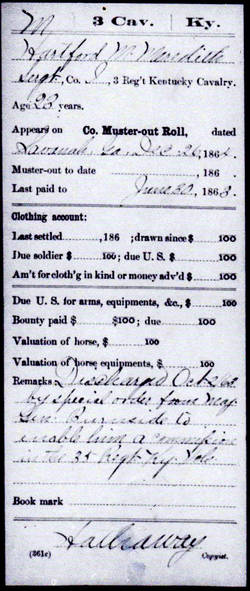 M | 3 Cav. | Ky.
Hartford M. Meredith
Sergt, Co. I, 3 Reg't Kentucky Cavalry.
Age 20 years.
Appears on Co. Muster-out Roll, dated
Savanah, Ga, Dec 26, 1864.
Muster-out to date , 186 .
Last paid to June 30, 1863.
Clothing account:
Last settled , 186 ; drawn since $ 100
Due soldier $ 100; due U.S. $ 100
Am't for cloth'g in kind or money adv'd $ 100
Due U.S. for arms, equipments, &c., $ 100
Bounty paid $ $100; due 100
Valuation of horse, $ 100
Valuation of horse equipments, $ 100
Remarks Discharged Oct 2 63
by special order from Maj
Gen. Burnside to
enable him a commission
in the 35 Regt. Ky. Vols.
Book mark
Hathaway
(361c) Copyist.